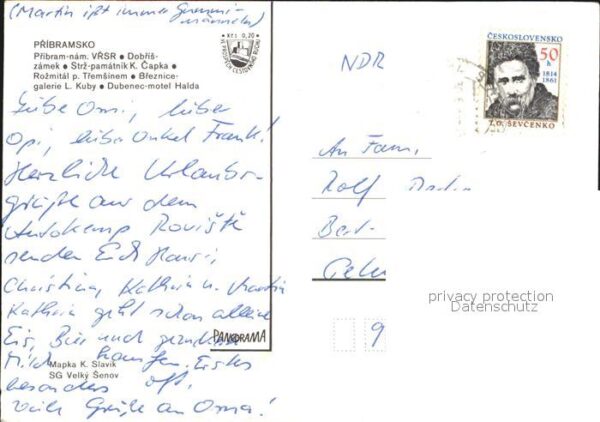 (Martin ißt immer Gummi-
männeln)
PŘÍBRAMSKO
Příbram-nám. VŘSR ● Dobříš-
zámek ● Strž-památník K. Čapka ●
Rožmitál p. Třemšínem ● Březnice-
galerie L. Kuby ● Dubenec-motel Halda
Kčs 0,20
Liebe Omi, lieber
Opi, lieber Onkel Frank!
Herzliche Urlaubs-
grüße aus dem
Autokemp Roviště
senden Euch Hansi,
Christina, Kathrin u. Martin
Kathrin geht schon alleine
Eis, Bier und
Milch kaufen. Eis
besonders oft.
Viele Grüße an Oma!
PANORAMA
Mapka K. Slavík
SG Velký Šenov
ČESKOSLOVENSKO
50
h
1814
1861
T.G. ŠEVČENKO
NDR
An Fam.
Rolf
9
privacy protection
Datenschutz